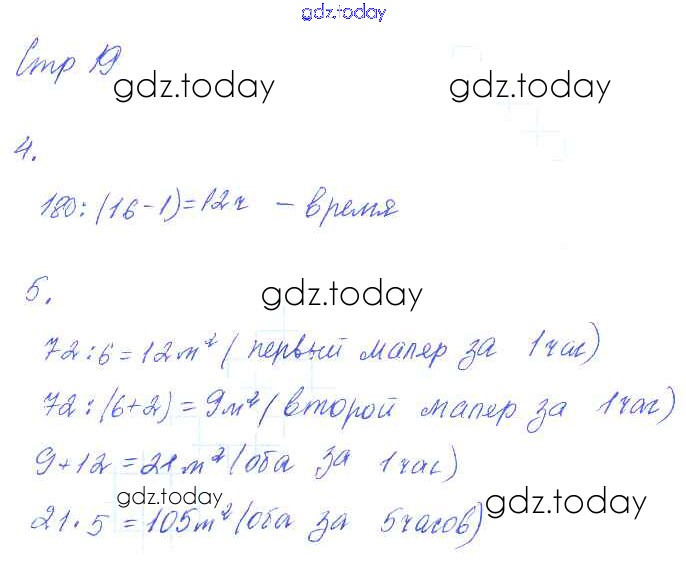 gdz.today
Стр 19
gdz.today gdz.today
4.
180:(16-1)=12ч - время
5.
gdz.today
72:6=12м² (первый маляр за 1 час)
72:(6+2)=9м² (второй маляр за 1 час)
9+12=21м² (оба за 1 час)
gdz.today gdz.today
21·5=105м² (оба за 5 часов)